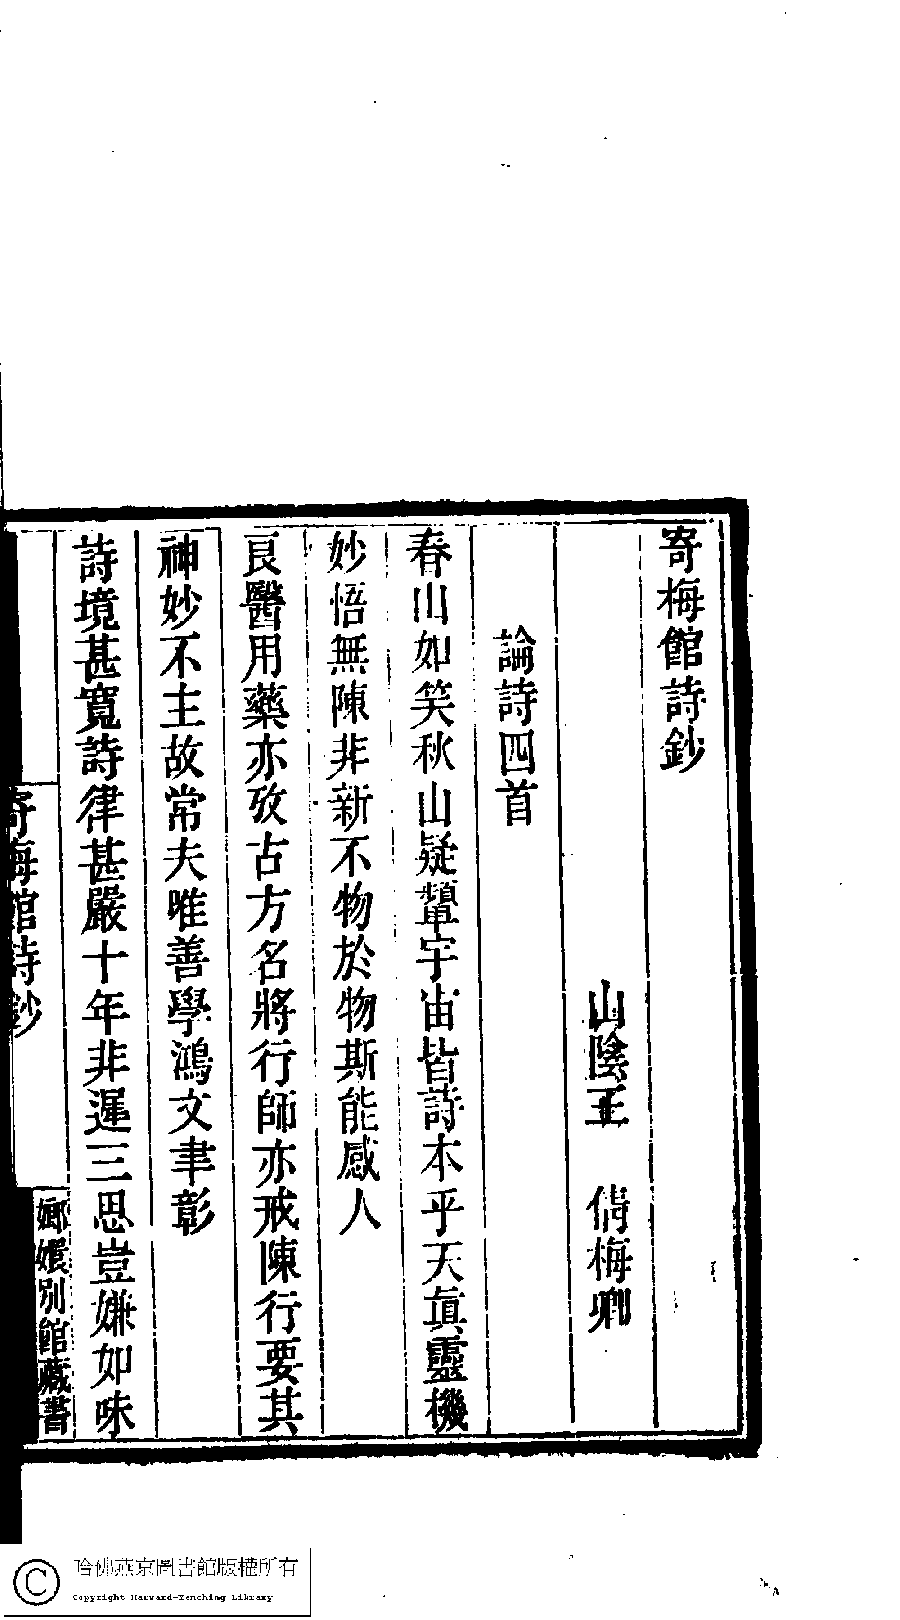 寄梅館詩鈔
山陰王　倩梅卿
論詩四首
春山如笑秋山疑顰宇宙皆詩本乎天眞靈機
妙悟無陳非新不物於物斯能感人
良醫用藥亦攷古方名將行師亦戒陳行要其
神妙不主故常夫唯善學鴻文聿彰
詩境甚寬詩律甚嚴十年非遲三思豈嫌如味
寄梅館詩鈔
嫏嬛別館藏書
哈佛燕京圖書館版權所有
Copyright Harvard-Yenching Library